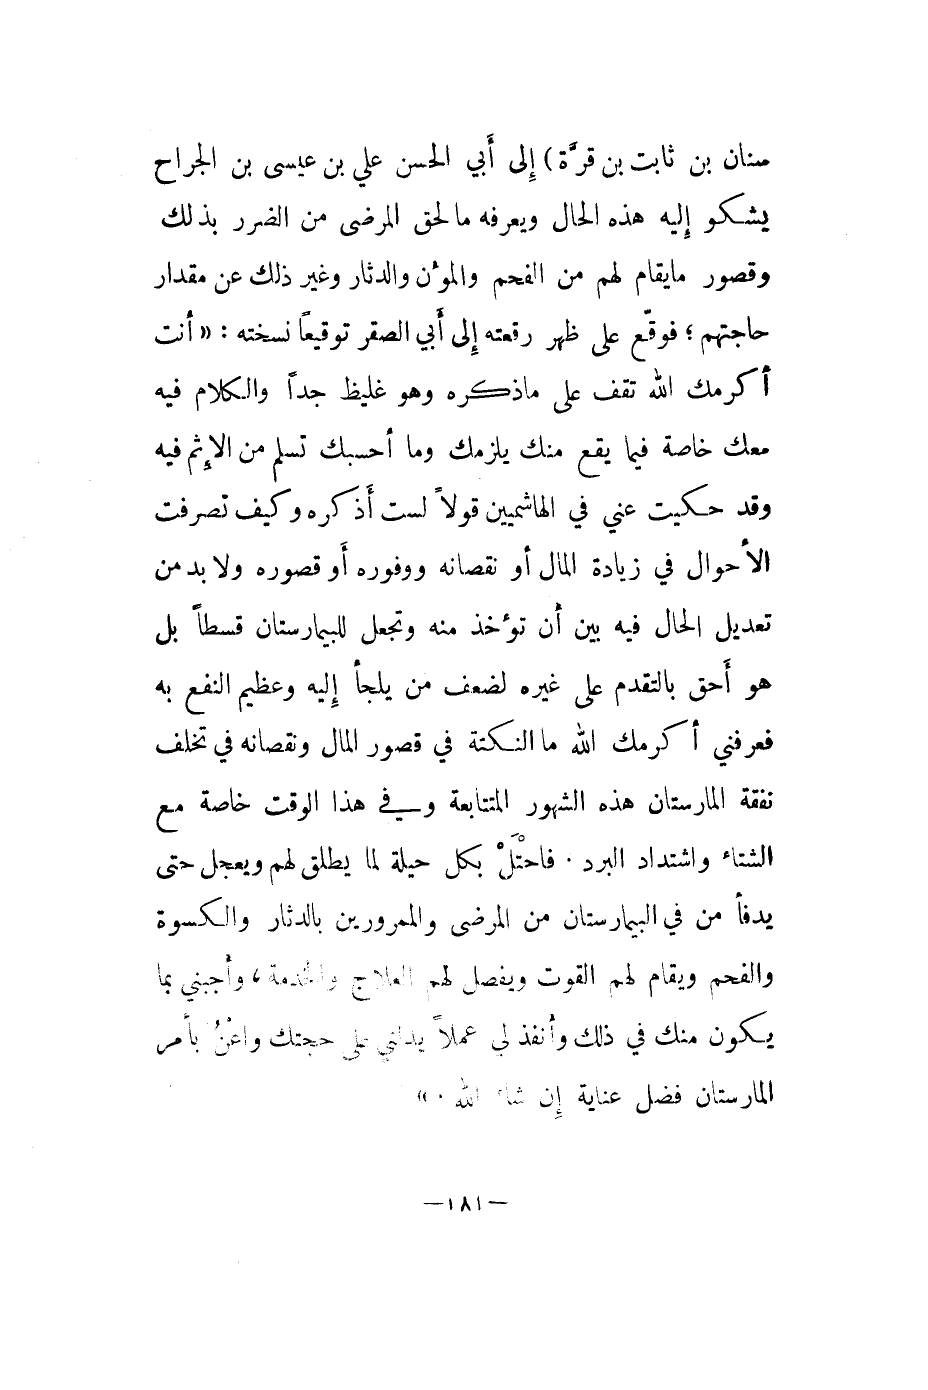 سنان بن ثابت بن قرَّة) إِلى أَبي الحسن علي بن عيسى بن الجراح
يشكو إِليه هذه الحال ويعرفه مالحق المرضى من الضرر بذلك
وقصور مايقام لهم من الفحم والمؤن والدثار وغير ذلك عن مقدار
حاجتهم؛ فوقّع على ظهر رقعته إِلى أَبي الصقر توقيعاً نسخته: «أنت
أكرمك الله تقف على ماذكره وهو غليظ جداً والكلام فيه
معك خاصة فيما يقع منك يلزمك وما أحسبك تسلم من الإِثم فيه
وقد حكيت عني في الهاشميين قولاً لست أَذكره وكيف تصرفت
الأحوال في زيادة المال أو نقصانه ووفوره أَو قصوره ولا بد من
تعديل الحال فيه بين أن تؤخذ منه وتجعل للبيمارستان قسطاً بل
هو أَحق بالتقدم على غيره لضعف من يلجأ إِليه وعظيم النفع به
فعرفني أكرمك الله ماالنكتة في قصور المال ونقصانه في تخلف
نفقة المارستان هذه الشهور المتتابعة وفي هذا الوقت خاصة مع
الشتاء واشتداد البرد. فاحتَلْ بكل حيلة لما يطلق لهم ويعجل حتى
يدفأ من في البيمارستان من المرضى والممرورين بالدثار والكسوة
والفحم ويقام لهم القوت ويفصل لهم العلاج والخدمة، وأجبني بما
يكون منك في ذلك وأنفذ لي عملاً يدلني على حجتك واعْنُ بأمر
المارستان فضل عناية إِن شاء الله.»
—١٨١—